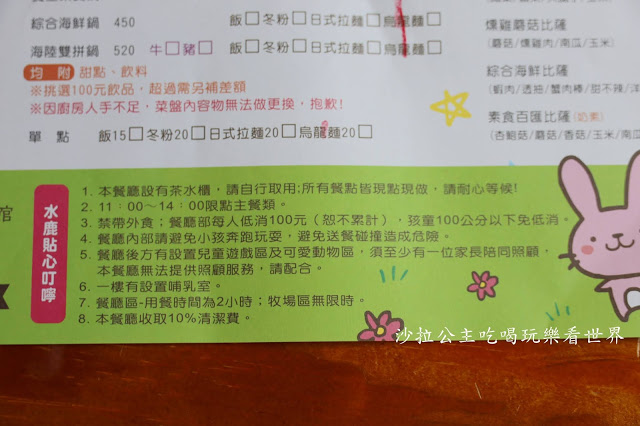 綜合海鮮鍋 450 飯□冬粉□日式拉麵□烏龍麵□
海陸雙拼鍋 520 牛□豬□ 飯□冬粉□日式拉麵□烏龍麵□
均 附 甜點、飲料
※挑選100元飲品，超過需另補差額
※因廚房人手不足，菜盤內容物無法做更換，抱歉!
單 點 飯15□冬粉20□日式拉麵20□烏龍麵20□
燻雞蘑菇比薩
(蘑菇/燻雞肉/南瓜/玉米)
綜合海鮮比薩
(蝦肉/透抽/蟹肉棒/甜不辣/洋
素食百匯比薩(奶素)
(杏鮑菇/蘑菇/香菇/玉米/南瓜
館
水鹿貼心叮嚀
1. 本餐廳設有茶水櫃，請自行取用;所有餐點皆現點現做，請耐心等候!
2. 11：00～14：00限點主餐類。
3. 禁帶外食；餐廳部每人低消100元（恕不累計），孩童100公分以下免低消。
4. 餐廳內部請避免小孩奔跑玩耍，避免送餐碰撞造成危險。
5. 餐廳後方有設置兒童遊戲區及可愛動物區，須至少有一位家長陪同照顧，
本餐廳無法提供照顧服務，請配合。
6. 一樓有設置哺乳室。
7. 餐廳區-用餐時間為2小時；牧場區無限時。
8. 本餐廳收取10%清潔費。
沙拉公主吃喝玩樂看世界